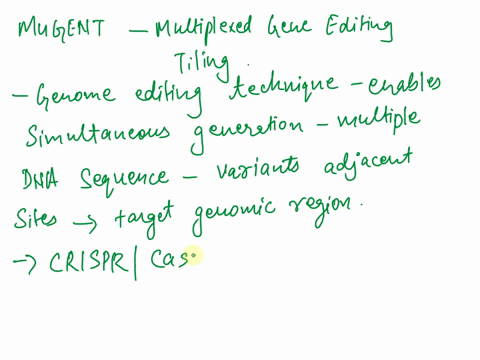 MuGENT - Multiplexed Gene Editing
Tiling.
- Genome editing technique - enables
Simultaneous generation - multiple
DNA Sequence - variants adjacent
Sites → target genomic region.
→ CRISPR/ Cas